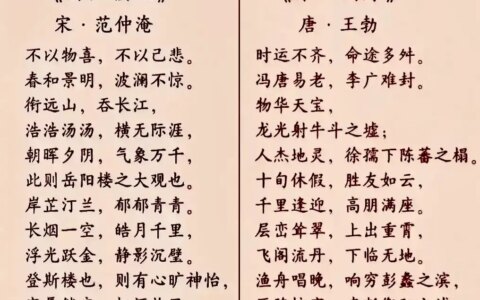 宋·范仲淹
不以物喜，不以己悲。
春和景明，波澜不惊。
衔远山，吞长江，
浩浩汤汤，横无际涯，
朝晖夕阴，气象万千，
此则岳阳楼之大观也。
岸芷汀兰，郁郁青青。
长烟一空，皓月千里，
浮光跃金，静影沉璧。
登斯楼也，则有心旷神怡，
唐·王勃
时运不齐，命途多舛。
冯唐易老，李广难封。
物华天宝，
龙光射牛斗之墟；
人杰地灵，徐孺下陈蕃之榻。
十旬休假，胜友如云，
千里逢迎，高朋满座。
层峦耸翠，上出重霄，
飞阁流丹，下临无地。
渔舟唱晚，响穷彭蠡之滨，